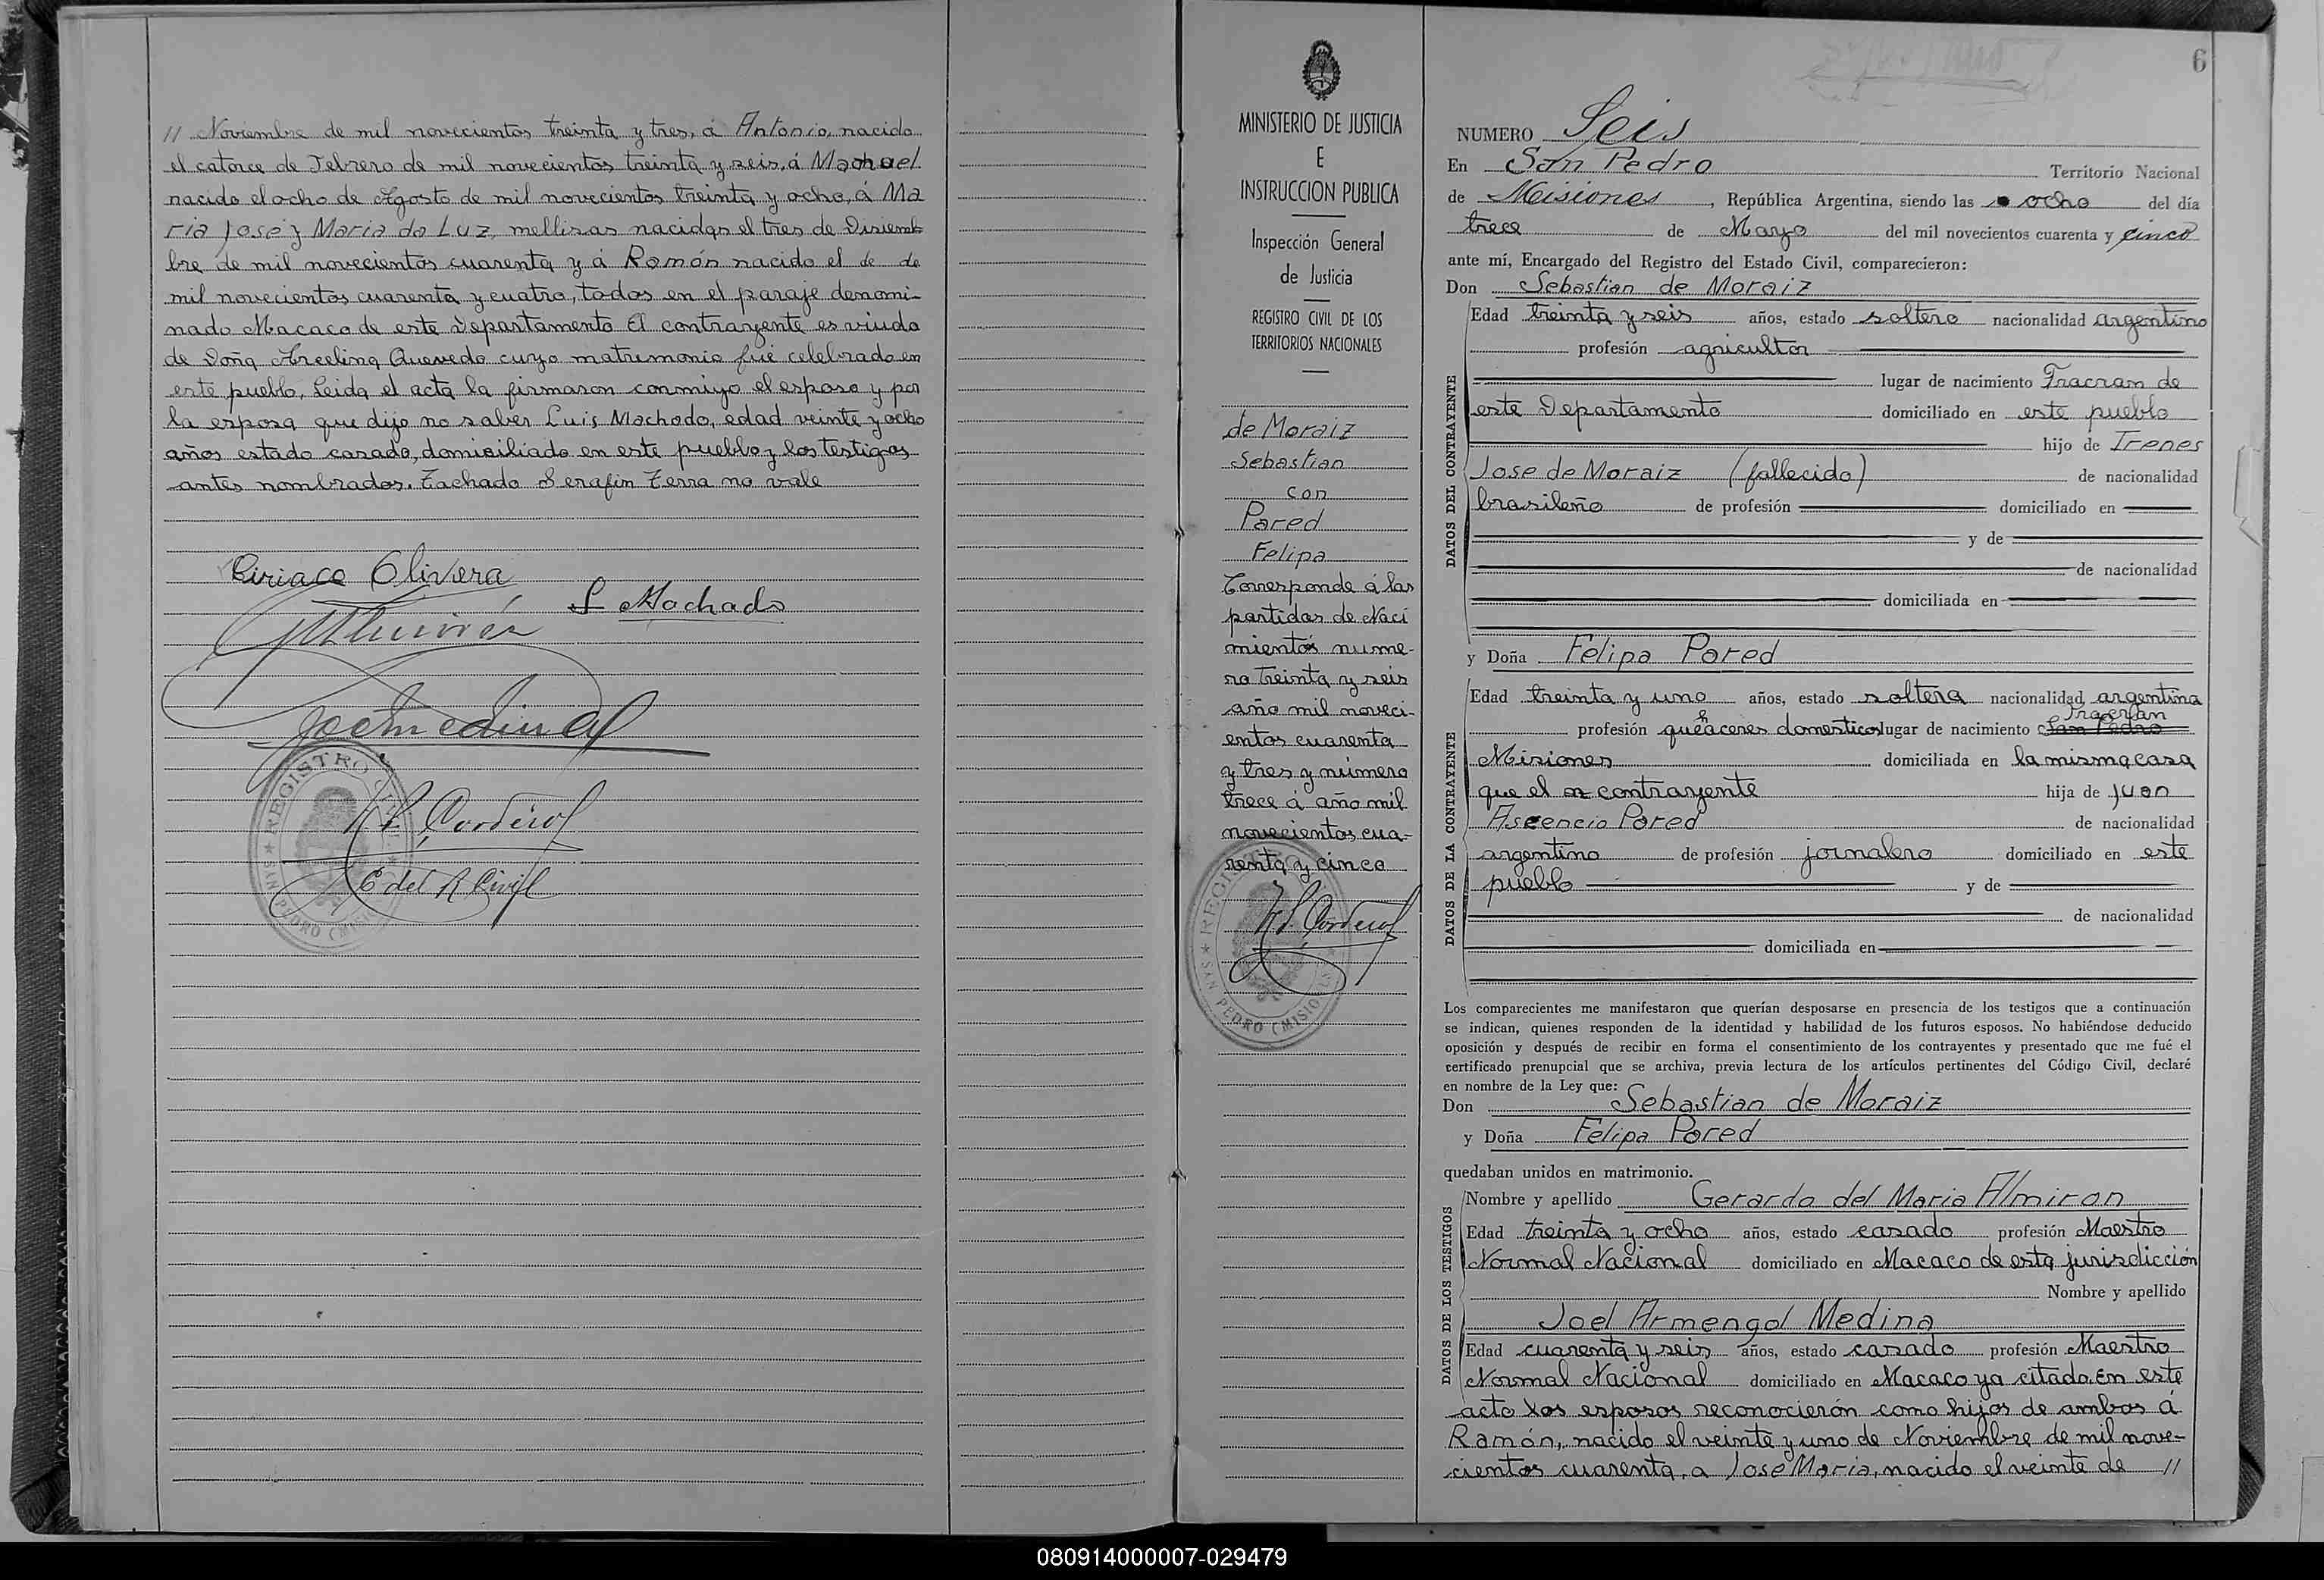 11 Noviembre de mil novecientos treinta y tres, á Antonio, nacido
el catorce de Febrero de mil novecientos treinta y seis, á
nacido el ocho de Agosto de mil novecientos treinta y ocho, á Ma
ria José y Maria da Luz, mellisas nacidas el tres de Disiem
bre de mil novecientos cuarenta y á Ramón nacido el de de
mil novecientos cuarenta y cuatro, todos en el paraje denomi-
nado Macaco de este Departamento El contrayente es viudo
de Doña Quevedo cuyo matrimonio fué celebrado en
este pueblo, Leida el acta la firmaron conmigo el esposo y por
la esposa que dijo no saber Luis Machado, edad veinte y ocho
años estado casado, domiciliado en este pueblo y los testigos
antes nombrados. Tachado Serafin Terra no vale
Ciriaco Olivera
L Machado
E del R Civil
REGISTRO CIVIL
MINISTERIO DE JUSTICIA
E
INSTRUCCION PUBLICA
Inspección General
de Justicia
REGISTRO CIVIL DE LOS
TERRITORIOS NACIONALES
de Moraiz
Sebastian
con
Pared
Felipa
Corresponde á las
partidas de Naci
mientos nume-
ro treinta y seis
año mil noveci-
entos cuarenta
y tres y número
trece á año mil
novecientos cua-
renta y cinco
SAN PEDRO (MISIONES)
6
NUMERO Seis
En San Pedro Territorio Nacional
de Misiones, República Argentina, siendo las ocho del día
trece de Mayo del mil novecientos cuarenta y cinco
ante mí, Encargado del Registro del Estado Civil, comparecieron:
Don Sebastian de Moraiz
DATOS DEL CONTRAYENTE
Edad treinta y seis años, estado soltero nacionalidad argentino
profesión agricultor
lugar de nacimiento Fracram de
este Departamento domiciliado en este pueblo
hijo de Irenes
Jose de Moraiz (fallecido) de nacionalidad
brasileño de profesión domiciliado en
y de
de nacionalidad
domiciliada en
y Doña Felipa Pared
DATOS DE LA CONTRAYENTE
Edad treinta y uno años, estado soltera nacionalidad argentina
profesión quehaceres domesticos lugar de nacimiento San Pedro Fracran
Misiones domiciliada en la misma casa
que el contrayente hija de Juan
Ascencio Pared de nacionalidad
argentino de profesión jornalero domiciliado en este
pueblo y de
de nacionalidad
domiciliada en
Los comparecientes me manifestaron que querían desposarse en presencia de los testigos que a continuación
se indican, quienes responden de la identidad y habilidad de los futuros esposos. No habiéndose deducido
oposición y después de recibir en forma el consentimiento de los contrayentes y presentado que me fué el
certificado prenupcial que se archiva, previa lectura de los artículos pertinentes del Código Civil, declaré
en nombre de la Ley que:
Don Sebastian de Moraiz
y Doña Felipa Pared
quedaban unidos en matrimonio.
DATOS DE LOS TESTIGOS
Nombre y apellido Gerardo del Maria Almiron
Edad treinta y ocho años, estado casado profesión Maestro
Normal Nacional domiciliado en Macaco de esta jurisdicción
Nombre y apellido
Joel Armengol Medina
Edad cuarenta y seis años, estado casado profesión Maestro
Normal Nacional domiciliado en Macaco ya citado. En este
acto los esposos reconocierón como hijos de ambos á
Ramón, nacido el veinte y uno de Noviembre de mil nove-
cientos cuarenta, a José Maria, nacido el veinte de 11
080914000007-029479